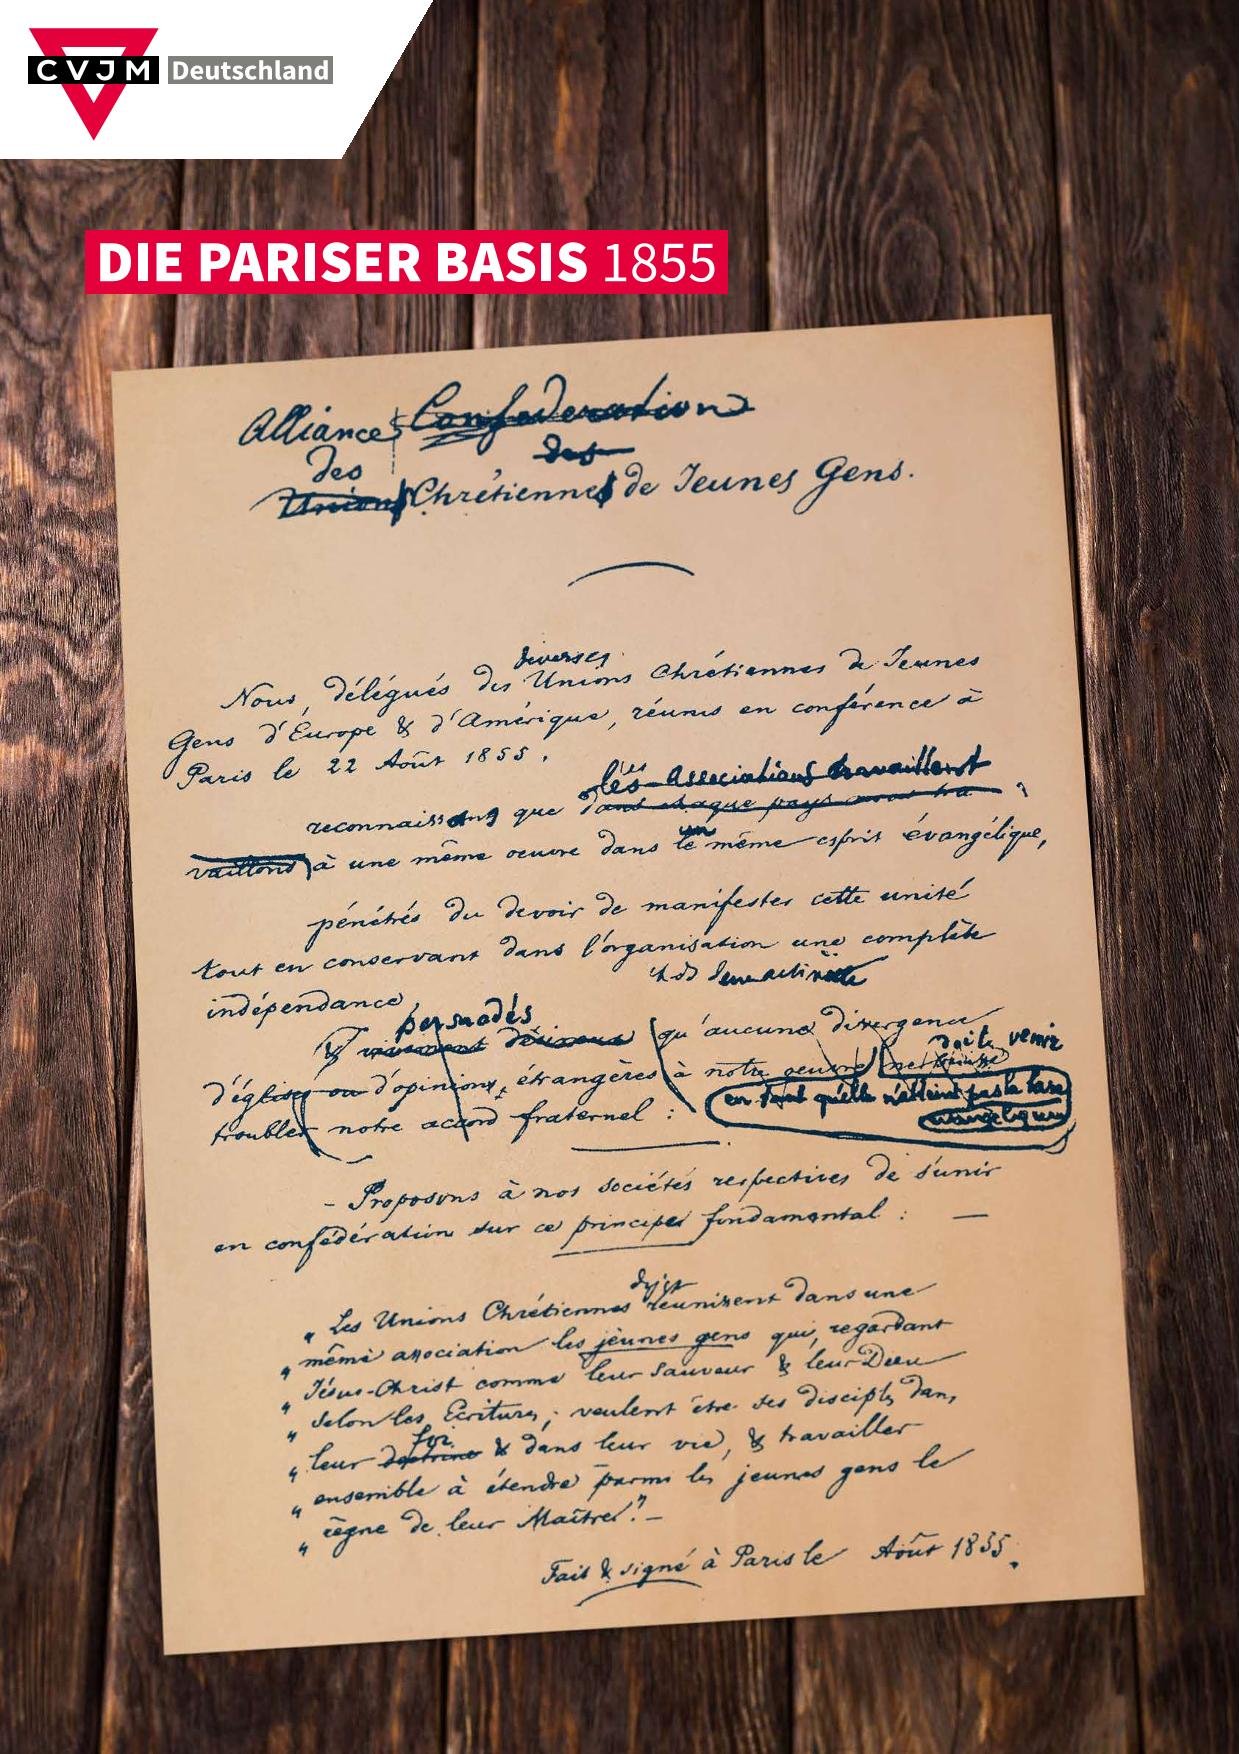 CVJM Deutschland
DIE PARISER BASIS 1855
Alliance Confederation
des des
Unions Chrétiennes de Jeunes Gens.
diverses
Nous, délégués des Unions Chrétiennes de Jeunes
Gens d'Europe & d'Amérique, réunis en conférence à
Paris le 22 Août 1855.
les Associations travaillent
reconnaissant que dans chaque pays nous tra
vaillons à une même oeuvre dans le même esprit évangélique,
un
pénétrés du devoir de manifester cette unité
tout en conservant dans l'organisation une complète
indépendance,
persuadés
& vivement désireux qu'aucune divergence
doit venir
d'églises ou d'opinions, étrangères à notre oeuvre ne
en tant qu'elle n'atteint pas la base
évangélique
troubler notre accord fraternel :
- Proposons à nos sociétés respectives de s'unir
en confédération sur ce principe fondamental : —
" Les Unions Chrétiennes réunissent dans une
" même association les jeunes gens qui, regardant
" Jésus-Christ comme leur Sauveur & leur Dieu
" selon les Ecritures, veulent être ses disciples dans
foi
" leur doctrine & dans leur vie, & travailler
" ensemble à étendre parmi les jeunes gens le
" règne de leur Maître." —
Fait & signé à Paris le Août 1855.